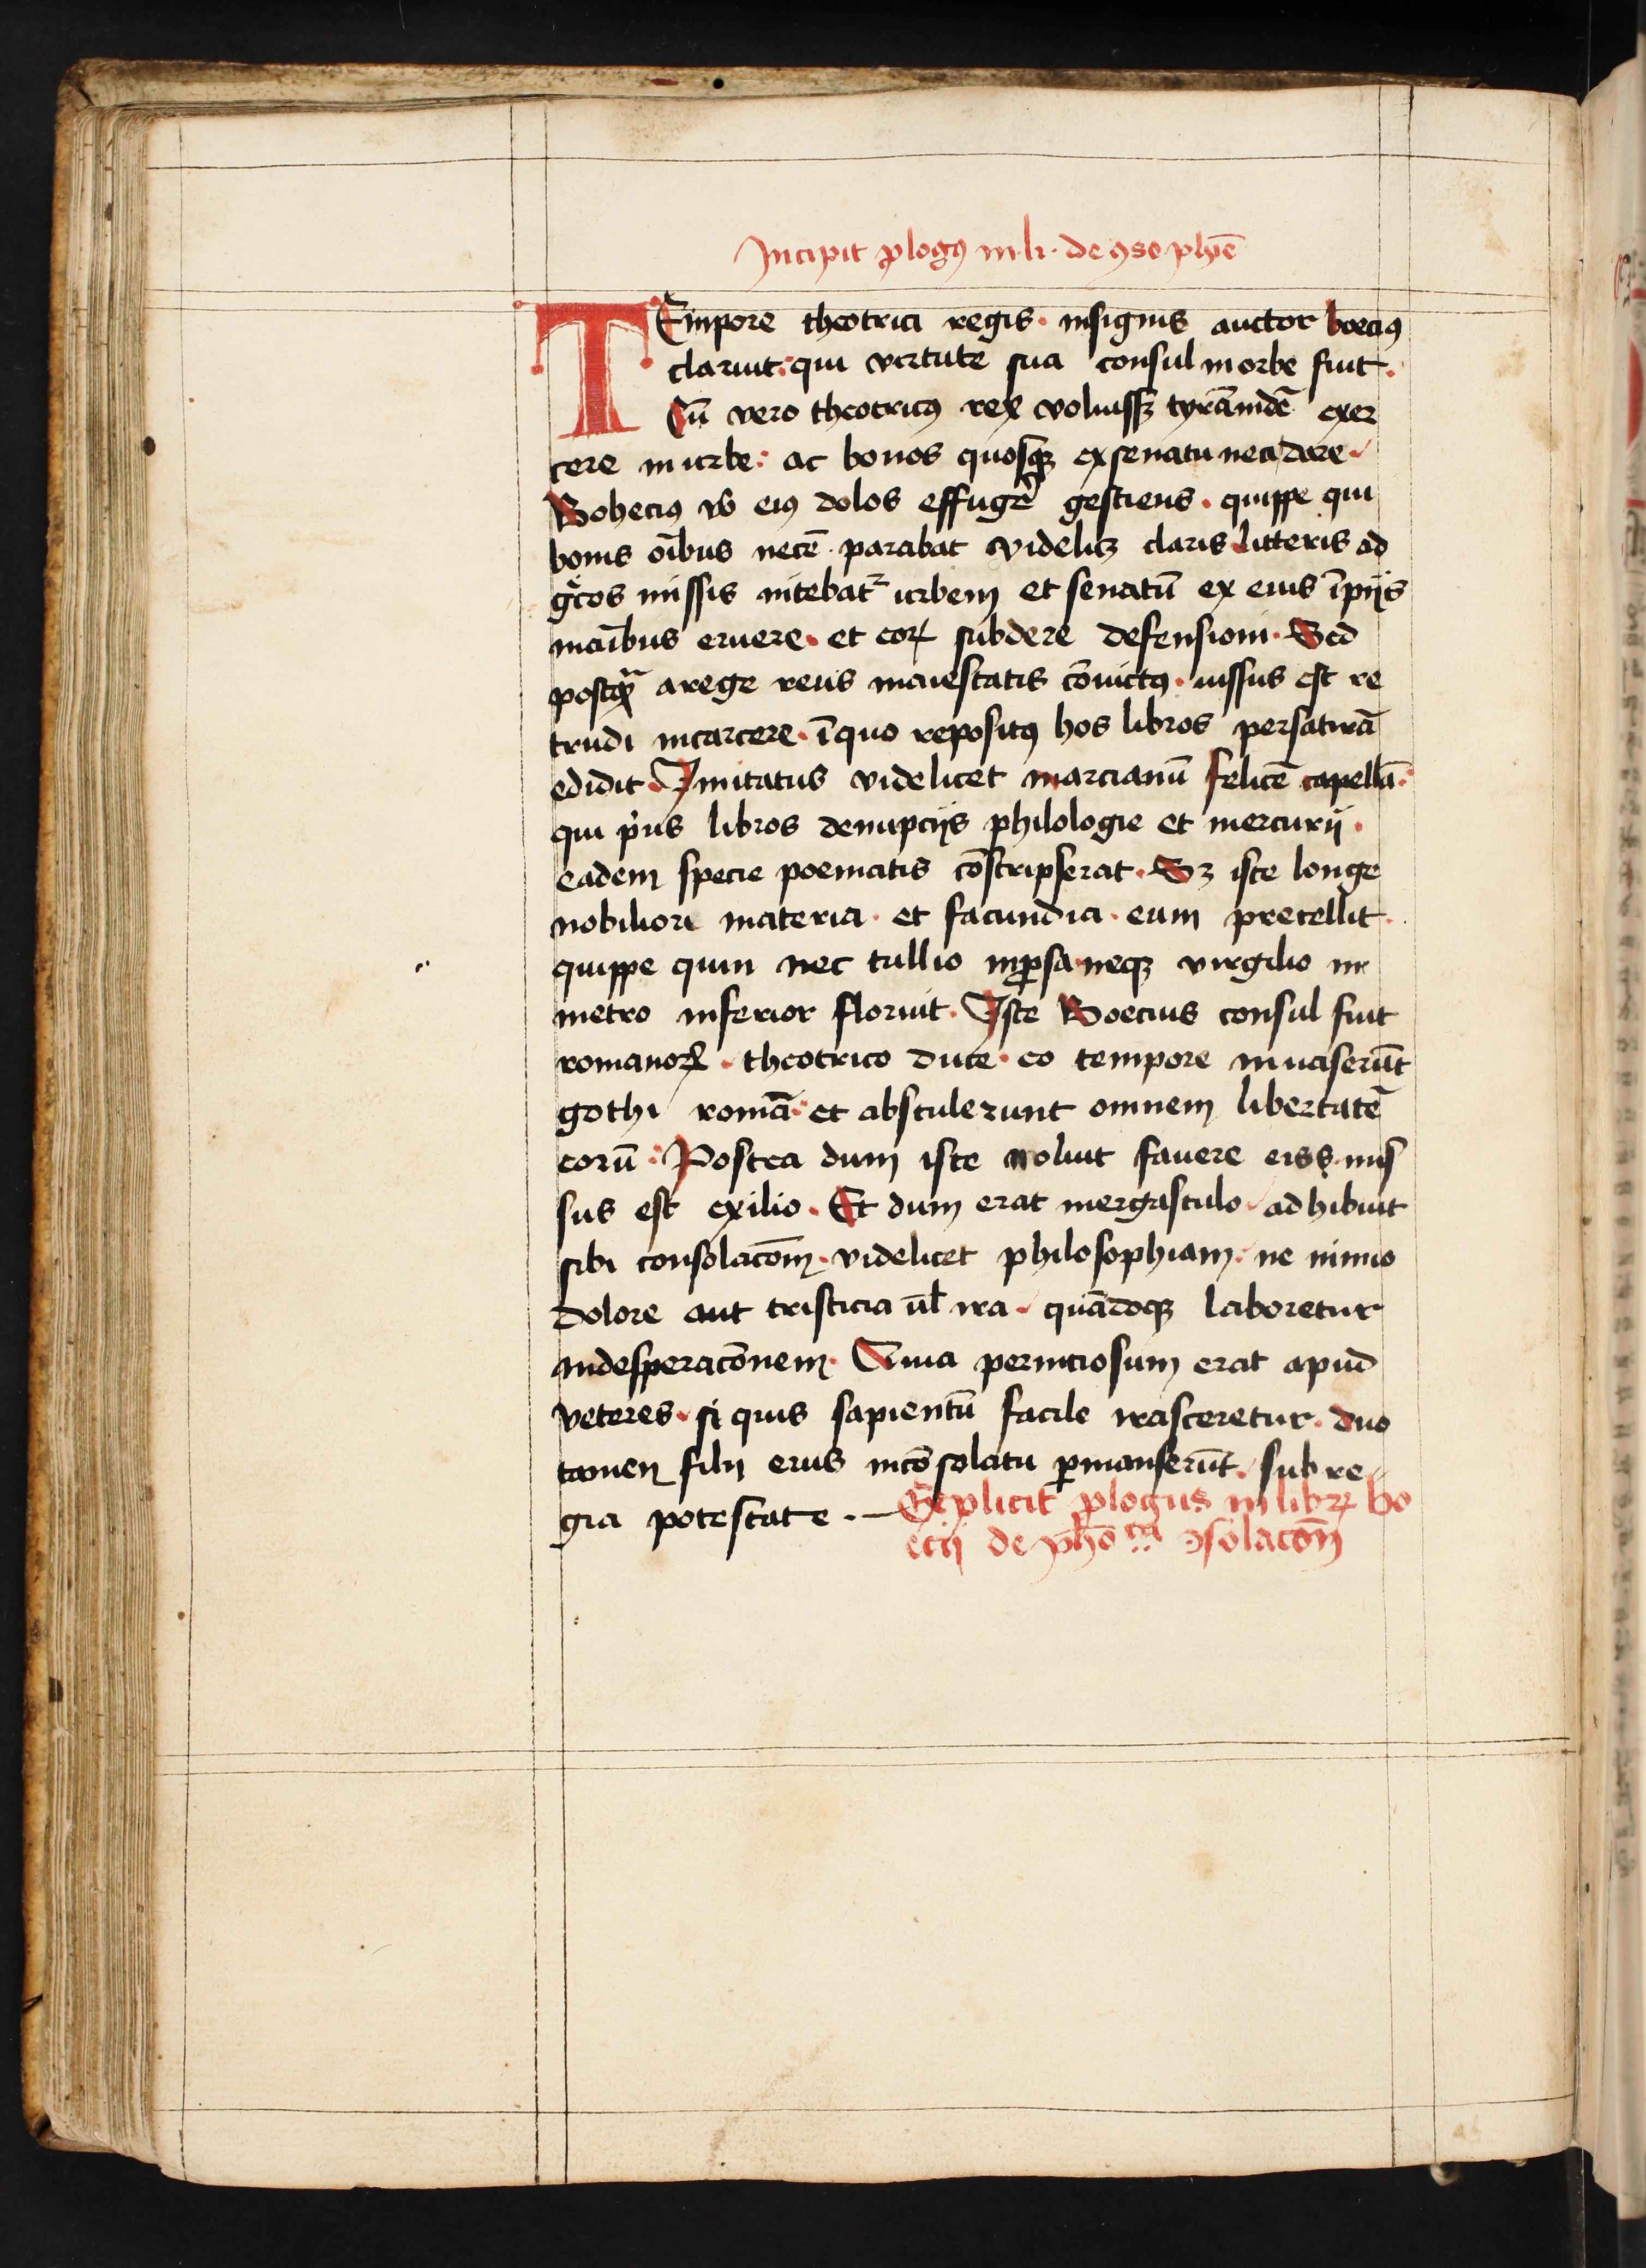 Incipit ꝓlogꝰ in li. de ꝯso phie̅
TEmpore theotrici regis. insignis auctor boeciꝰ
claruit: qui virtute sua consul in orbe fuit.
Cū vero theotricꝰ rex voluissꝫ tyrānidē exer
cere in urbe: ac bonos quosqꝫ ex senatu neci dare.
Boheciꝰ v̊o eiꝰ dolos effug̾e gestiens. quippe qui
bonis oı̅bus necē parabat videlicꝫ claris litteris ad
g̊cos missis nitebatᷣ urbem et senatū ex eius īpijs
manı̅bus eruere. et eoꝝ subdere defensioni. Sed
postqᷓ a rege reus maiestatis cōuictꝰ. iussus est re
trudi in carcere. ī quo repositꝰ hos libros per saturā
edidit. Imitatus videlicet marcianū felicē capellā.
qui pⁱus libros de nupcijs philologie et mercurij.
eadem specie poematis cōscripserat. Sꝫ iste longe
nobiliori materia. et facundia. eum precellit.
quippe qui nec tullio in ꝓsa neqꝫ virgilio in
metro inferior floruit. Iste Boecius consul fuit
romanoꝝ. theotrico duce. eo tempore inuaserūt
gothi romā: et abstulerunt omnem libertatē
eorū: Postea dum iste noluit fauere eis. mis
sus est exilio. Et dum erat in ergastulo. adhibuit
sibi consolacōm. videlicet philosophiam. ne nimio
dolore aut tristicia ul̅ ira. quādoqꝫ laboretur
in desperacōnem. Quia perniciosum erat apud
veteres. si quis sapientū facile irasceretur. duo
tamen filii eius in cōsolatu ꝑmanserūt. sub re
gia potestate. — Explicit ꝓlogus in libꝝ bo
ecij de pho̅ᶜᵃ ꝯsolacōn̅